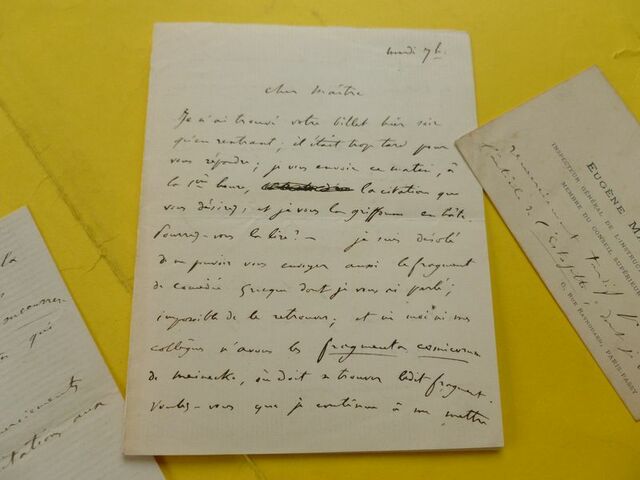 mardi 7h.
Cher Maître
Je n'ai trouvé votre billet hier soir
qu'en rentrant; il était trop tard pour
vous répondre; je vous envoie ce matin, à
la 1ère heure, la citation que
vous désirez; et je vous la griffonne en hâte.
Pourrez-vous la lire? - je suis désolé
de ne pouvoir vous envoyer aussi le fragment
de comédie Grecque dont je vous ai parlé;
impossible de le retrouver; et ni moi ni mes
collègues n'avons les fragmenta comicorum
de Meineke, où doit se trouver ledit fragment.
Voulez-vous que je continue à me mettre
la
qui
EUGÈNE M
INSPECTEUR GÉNÉRAL DE L'INSTRU
MEMBRE DU CONSEIL SUPÉRIEUR
RUE RAYNOUARD, PARIS-PASSY